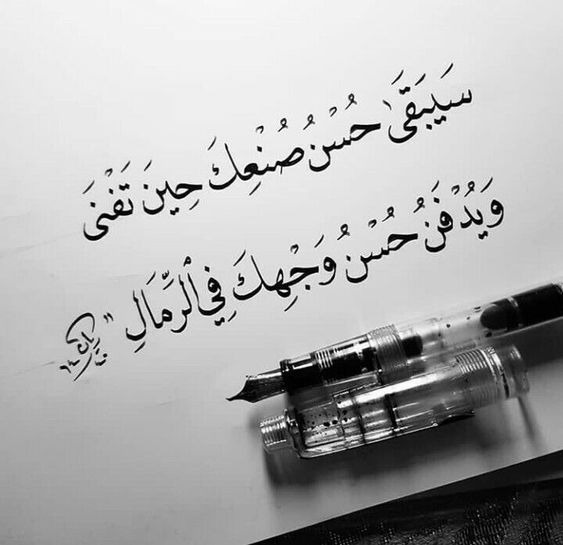 سَيَبْقَىٰ حُسْنُ صُنْعِكَ حِينَ تَفْنَى
وَيُدْفَنُ حُسْنُ وَجْهِكَ فِي ٱلرِّمَالِ "